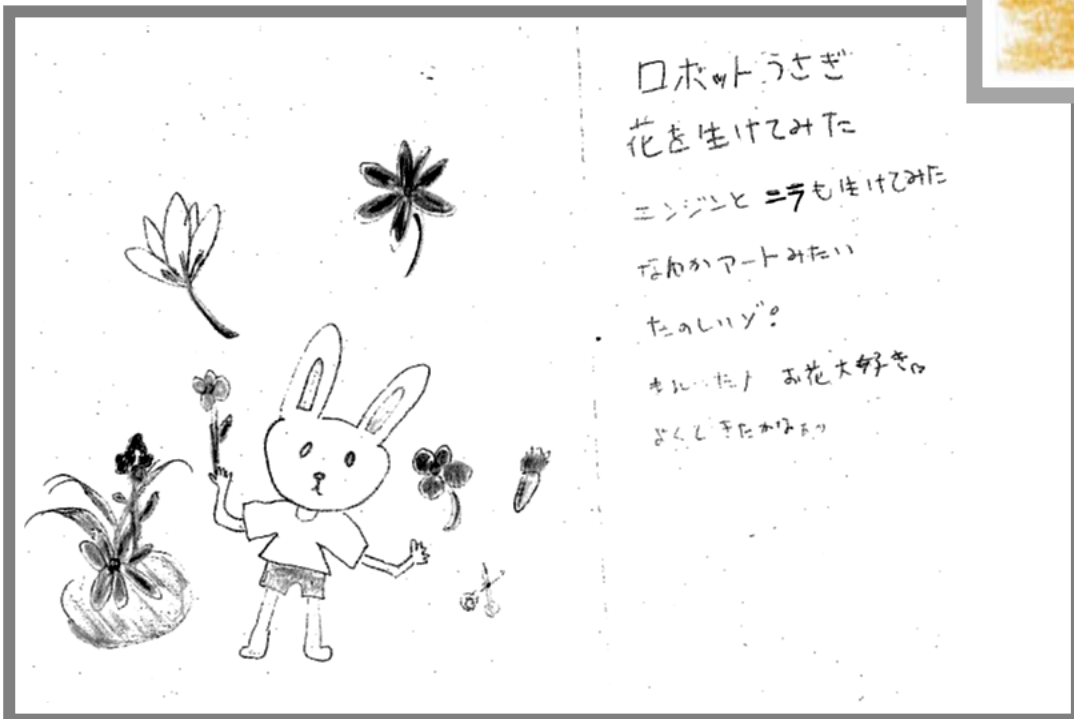 ロボットうさぎ
花を生けてみた
ニンジンとニラも生けてみた
なんかアートみたい
たのしいゾ!
お花大好き
よくできたかな